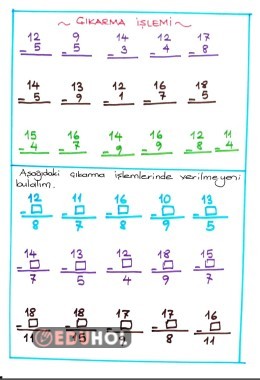 ÇIKARMA İŞLEMİ
12 9 14 12 17
- 5 - 5 - 3 - 4 - 8
14 13 12 16 18
- 5 - 9 - 1 - 7 - 5
15 16 14 16 12 11
- 4 - 7 - 9 - 9 - 8 - 4
Aşağıdaki çıkarma işlemlerinde verilmeyeni
bulalım.
12 11 16 10 13
- □ - □ - □ - □ - □
8 7 8 9 5
14 13 12 18 15
- □ - □ - □ - □ - □
7 5 4 9 7
18 18 17 17 16
- □ - □ - □ - □ - □
11 15 9 8 11
EDUHOL